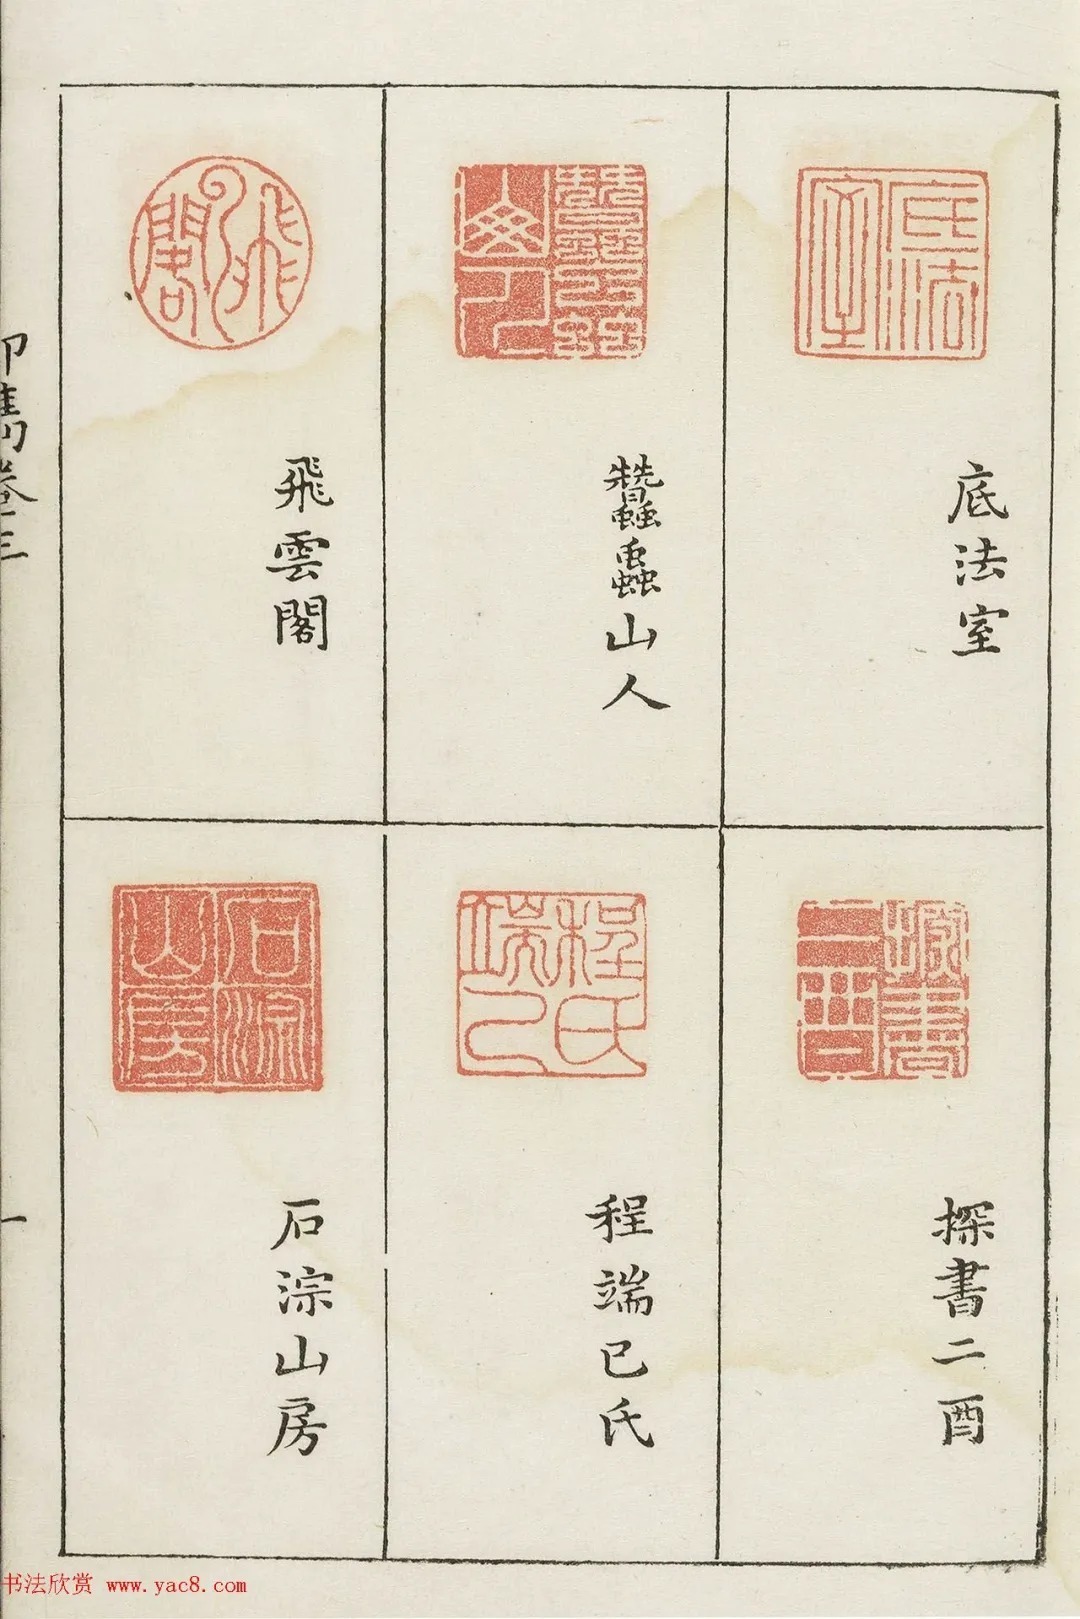 底法室
蠶蟲山人
飛雲閣
探書二酉
程端己氏
石淙山房
印雋卷三
一
书法欣赏 www.yac8.com